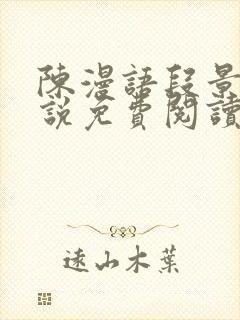 陳漫語段景
說免費閱讀
遠山木葉